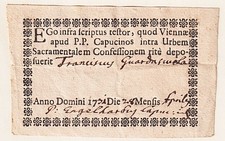 EGo infra scriptus testor, quod Viennæ
apud P.P. Capucinos intra Urbem
Sacramentalem Confessionem ritè depo-
suerit Franciscus
Anno Domini 172 Die Mensis Aprilis
P. Engelhardus